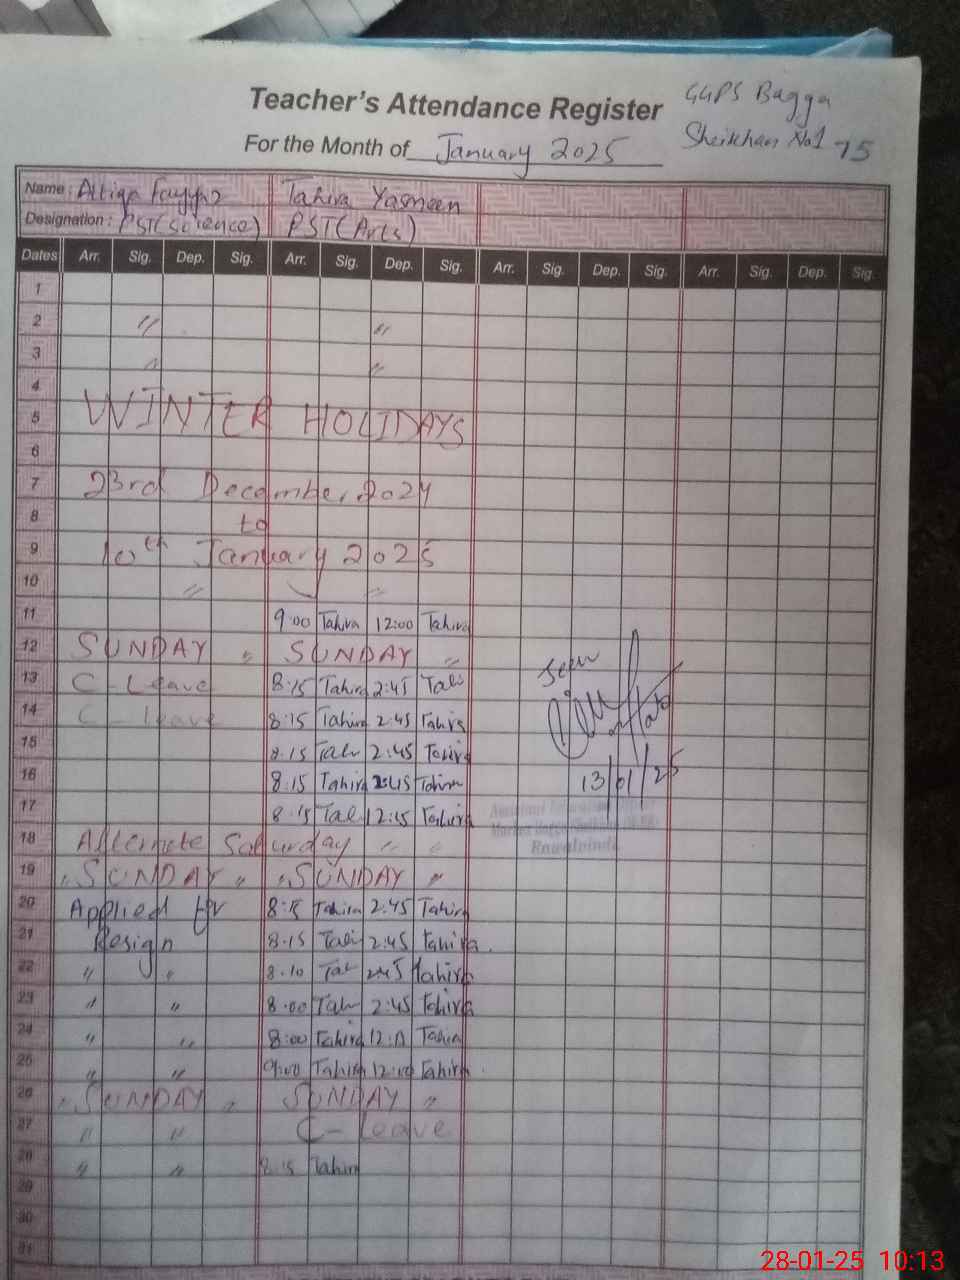 GGPS Bagga
Teacher's Attendance Register
Sheikhan No1 75
For the Month of January 2025
Name: Tahira Yasmeen
Designation: PST(Science) PST(Arts)
Dates Arr. Sig. Dep. Sig. Arr. Sig. Dep. Sig. Arr. Sig. Dep. Sig. Arr. Sig. Dep. Sig.
1
2 " "
3 " "
4
5 WINTER HOLIDAYS
6
7 23rd December, 2024
8 to
9 10th January 2025
10 " "
11 9:00 Tahira 12:00 Tahira
12 SUNDAY " SUNDAY "
Seen
13 C-Leave 8:15 Tahira 2:45
14 C-leave 8:15 Tahira 2:45 Tahira
15 8:15 2:45 Tahira
16 8:15 Tahira 2:45 Tahira
13/01/25
17 8:15 12:15 Tahira
Rawalpindi
18 Alternate Saturday " "
19 " SUNDAY " " SUNDAY "
20 Applied for 8:15 Tahira 2:45 Tahira
21 Resign 8:15 2:45 Tahira
22 " " 8:10 2:45 Tahira
23 " " 8:00 2:45 Tahira
24 " " 8:00 Tahira Tahira
25 " " 9:00 Tahira 12:00 Tahira
26 " SUNDAY " SUNDAY "
27 " " C-Leave
28 " " 8:15 Tahira
29
30
31
28-01-25 10:13